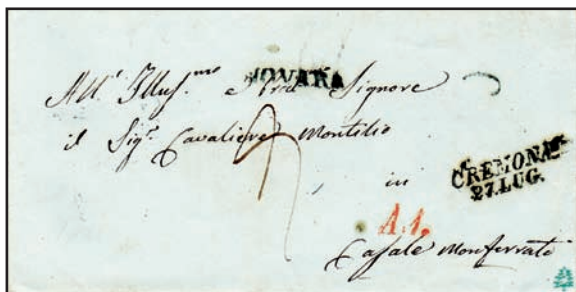 NOVARA
All' Illus.mo e Signore
il Sig.r Cavaliere Montilio
in
CREMONA
27.LUG.
A.1.
Casale Monferrato